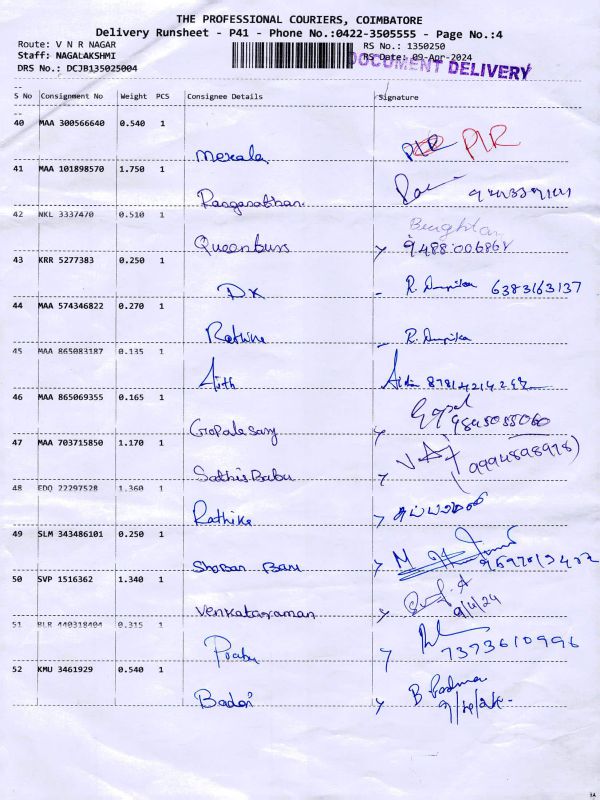 THE PROFESSIONAL COURIERS, COIMBATORE
Delivery Runsheet - P41 - Phone No.:0422-3505555 - Page No.:4
Route: V N R NAGAR RS No.: 1350250
Staff: NAGALAKSHMI RS Date: 09-Apr-2024
DOCUMENT DELIVERY
DRS No.: DCJB135025004
S No Consignment No Weight PCS Consignee Details Signature
40 MAA 300566640 0.540 1
Mekala PLR PLR
41 MAA 101898570 1.750 1
Ranganathan
42 NKL 3337470 0.510 1
Queenbuss 9488006868
43 KRR 5277383 0.250 1
DK R. Dupika 6383163137
44 MAA 574346822 0.270 1
Rathina R. Dupika
45 MAA 865083187 0.135 1
Ajith
46 MAA 865069355 0.165 1
Gopalasamy Gopal 9845055060
47 MAA 703715850 1.170 1
Sathis Babu (9994898978)
48 EDQ 22297528 1.360 1
Rathika
49 SLM 343486101 0.250 1
Shoban Banu
50 SVP 1516362 1.340 1
Venkataraman 9/4/24
51 BLR 440318404 0.315 1
Prabu 7373610996
52 KMU 3461929 0.540 1
Badri B Padma
3A